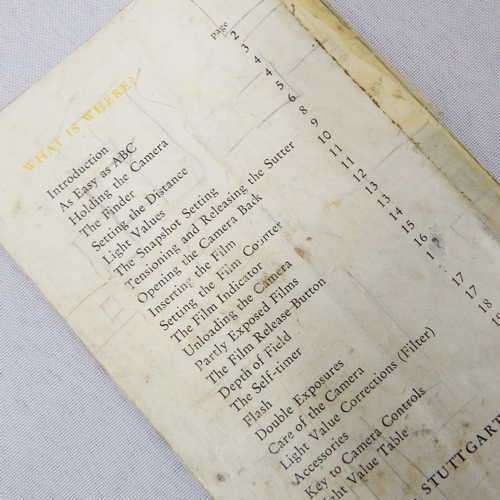 WHAT IS WHERE?
Page
Introduction 2
As Easy as ABC 3
Holding the Camera 4
The Finder 4
Setting the Distance 5
Light Values 6
The Snapshot Setting 8
Tensioning and Releasing the Sutter 9
Opening the Camera Back 10
Inserting the Film 11
Setting the Film Counter 11
The Film Indicator 12
Unloading the Camera 13
Partly Exposed Films 13
The Film Release-Button 14
Depth of Field 15
The Self-timer 16
Flash 1
Double Exposures 17
Care of the Camera 17
Light Value Corrections (Filter) 18
Accessories 19
Key to Camera Controls
Value Table
STUTTGAR